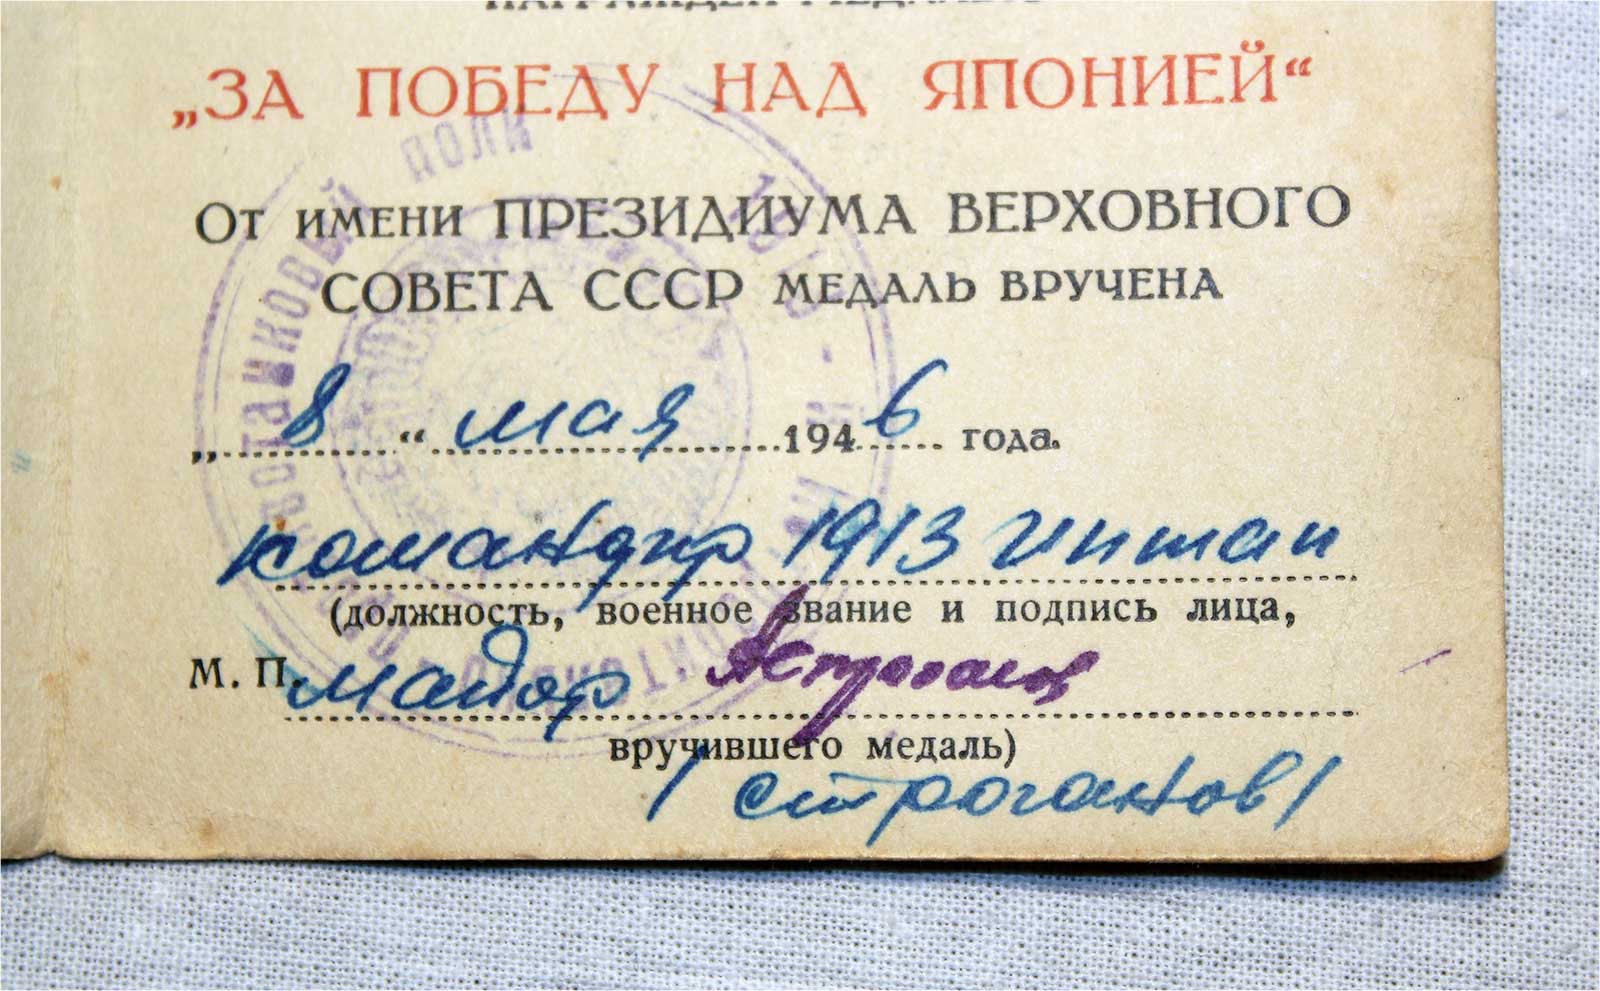 НАГРАЖДЕН МЕДАЛЬЮ
„ЗА ПОБЕДУ НАД ЯПОНИЕЙ“
От имени ПРЕЗИДИУМА ВЕРХОВНОГО
СОВЕТА СССР медаль вручена
„ 8 “ мая 1946 года.
командир 1913 иптап
(должность, военное звание и подпись лица,
М. П. майор
вручившего медаль)
/Строганов/